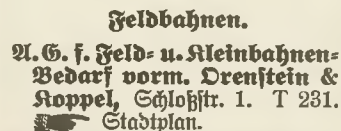 Feldbahnen.
A. G. f. Feld- u. Kleinbahnen-
Bedarf vorm. Orenstein &
Koppel, Schloßstr. 1. T 231.
☛ Stadtplan.